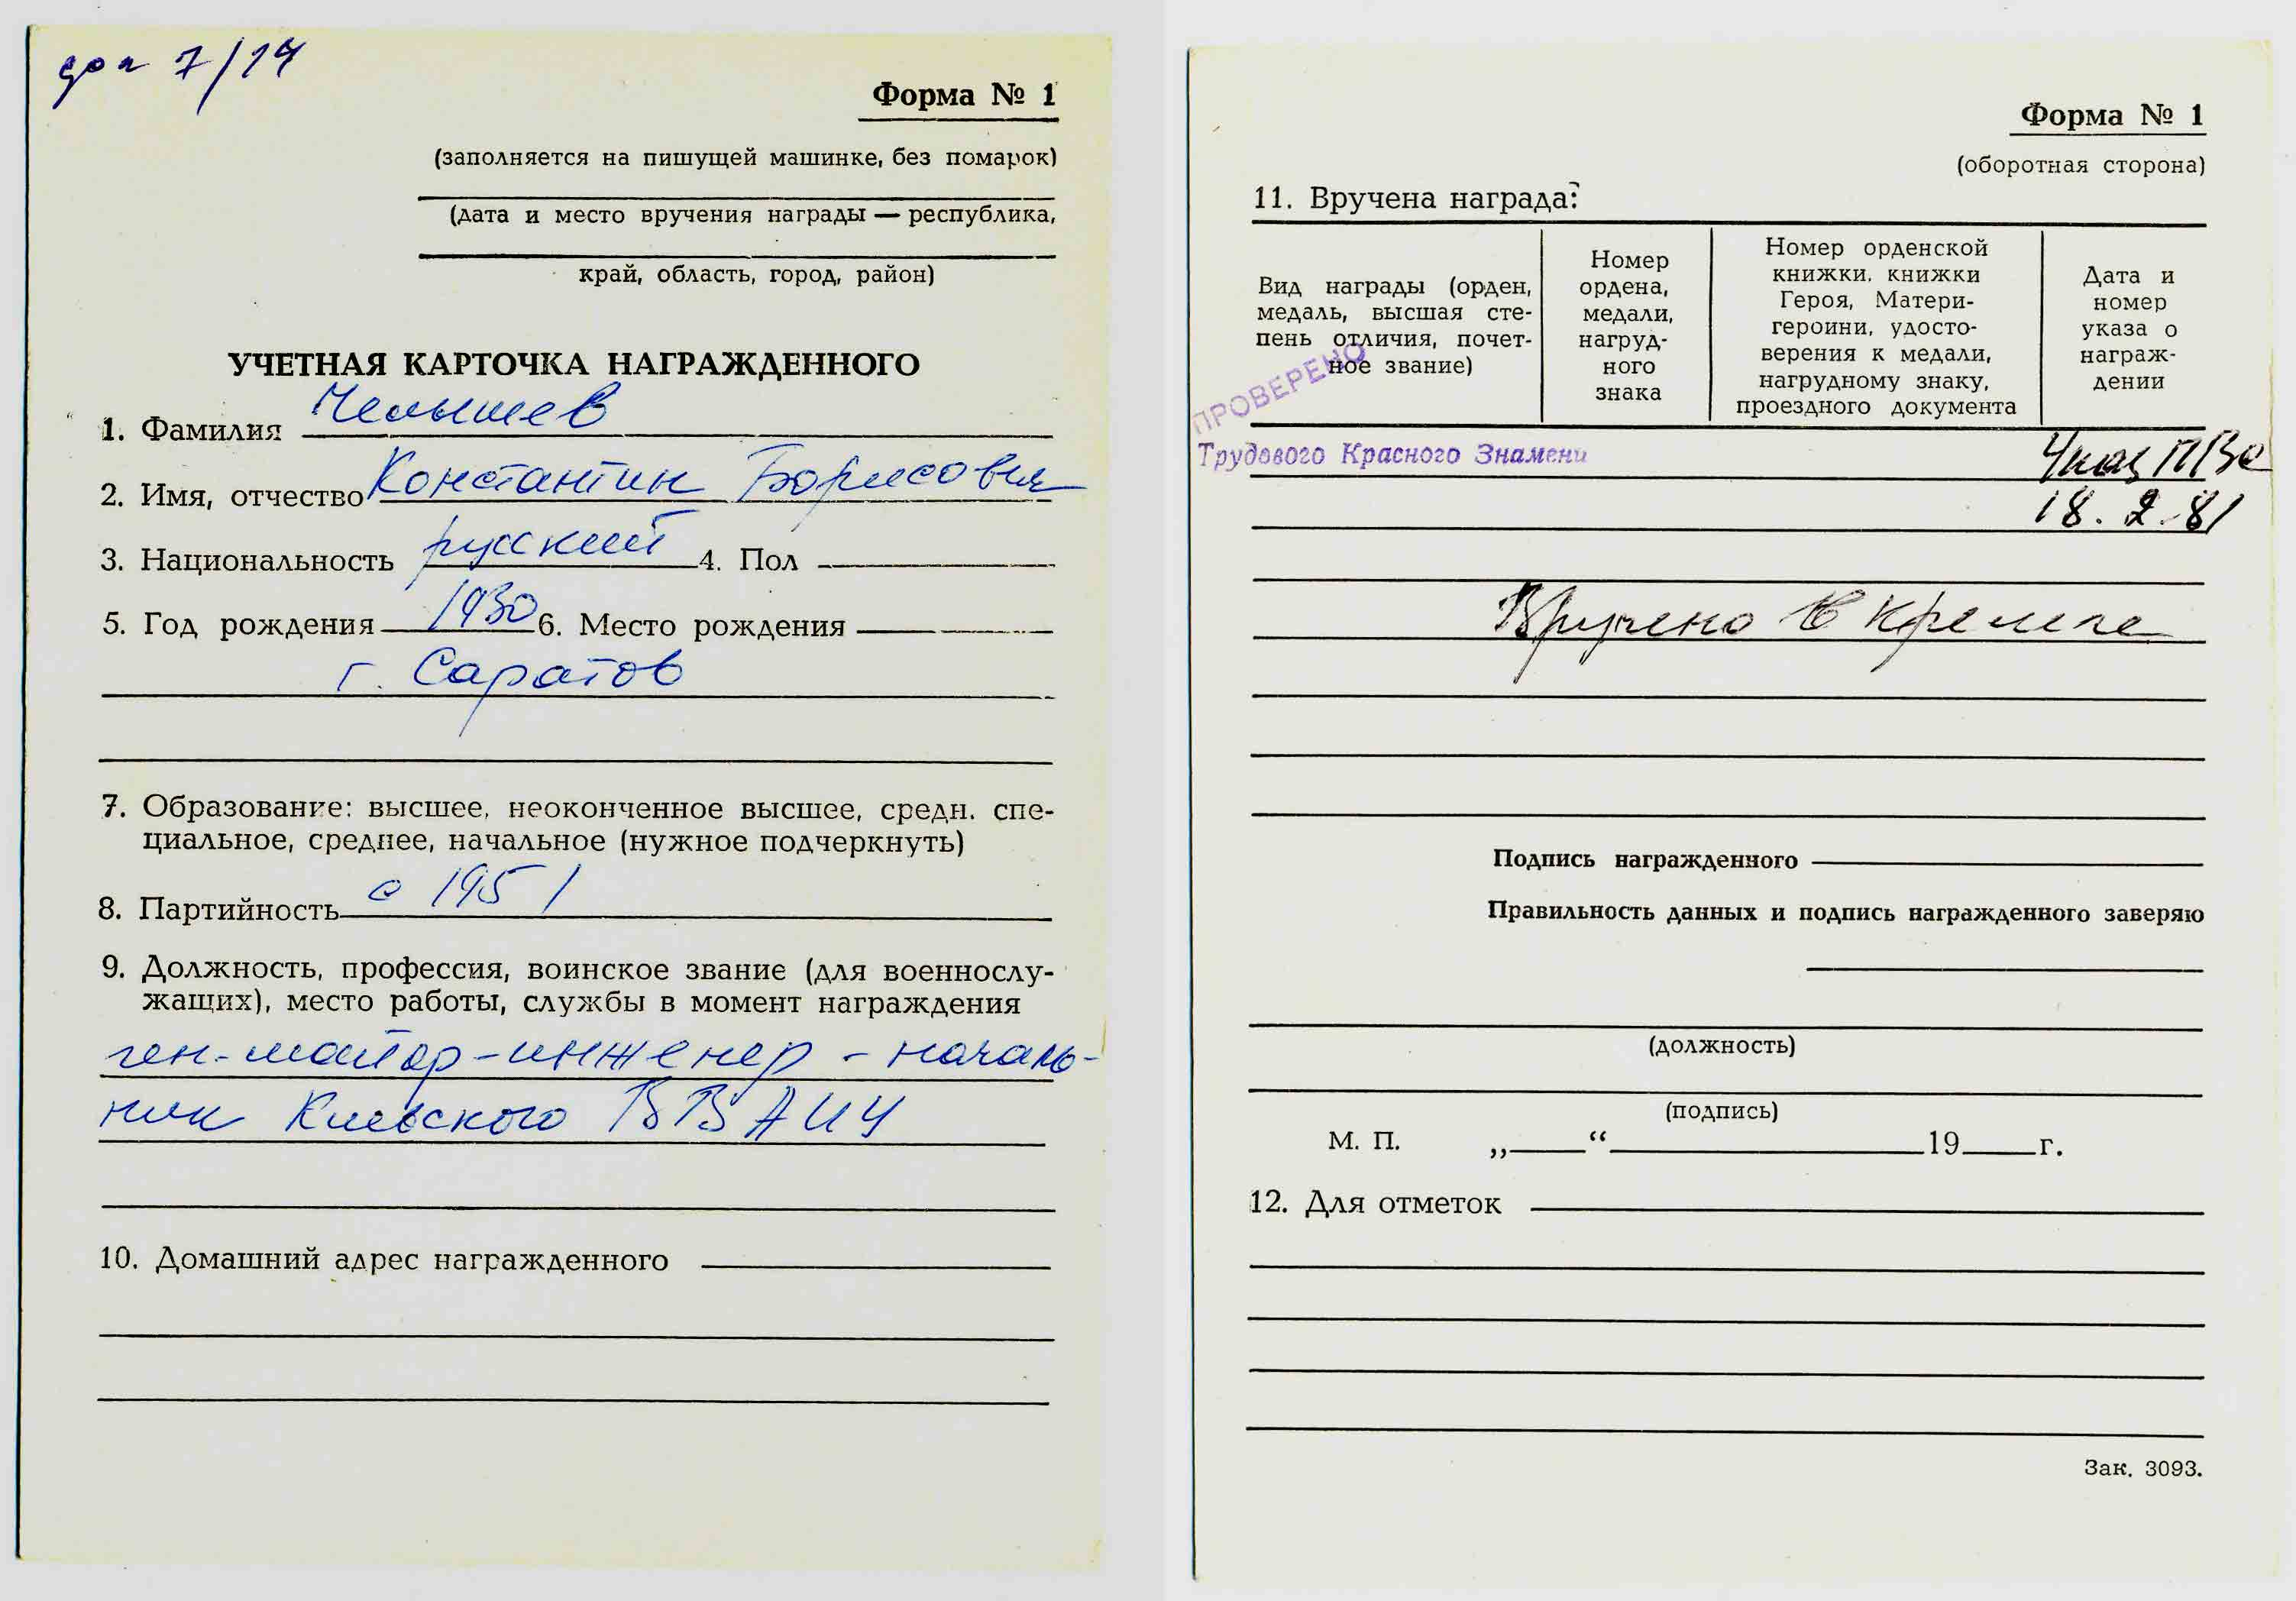 доп 7/14
Форма № 1
(заполняется на пишущей машинке, без помарок)
(дата и место вручения награды — республика,
край, область, город, район)
УЧЕТНАЯ КАРТОЧКА НАГРАЖДЕННОГО
1. Фамилия Челышев
2. Имя, отчество Константин Борисович
3. Национальность русский 4. Пол
5. Год рождения 1930 6. Место рождения
г. Саратов
7. Образование: высшее, неоконченное высшее, средн. спе-
циальное, среднее, начальное (нужное подчеркнуть)
8. Партийность с 1951
9. Должность, профессия, воинское звание (для военнослу-
жащих), место работы, службы в момент награждения
ген-майор-инженер - началь-
ник Киевского ВВАИУ
10. Домашний адрес награжденного
Форма № 1
(оборотная сторона)
11. Вручена награда:
Вид награды (орден,
медаль, высшая сте-
пень отличия, почет-
ное звание)
Номер
ордена,
медали,
нагруд-
ного
знака
Номер орденской
книжки, книжки
Героя, Матери-
героини, удосто-
верения к медали,
нагрудному знаку,
проездного документа
Дата и
номер
указа о
награж-
дении
ПРОВЕРЕНО
Трудового Красного Знамени
Указ ПВС
18.2.81
Вручено в Кремле
Подпись награжденного
Правильность данных и подпись награжденного заверяю
(должность)
(подпись)
М. П. „ “ 19 г.
12. Для отметок
Зак. 3093.